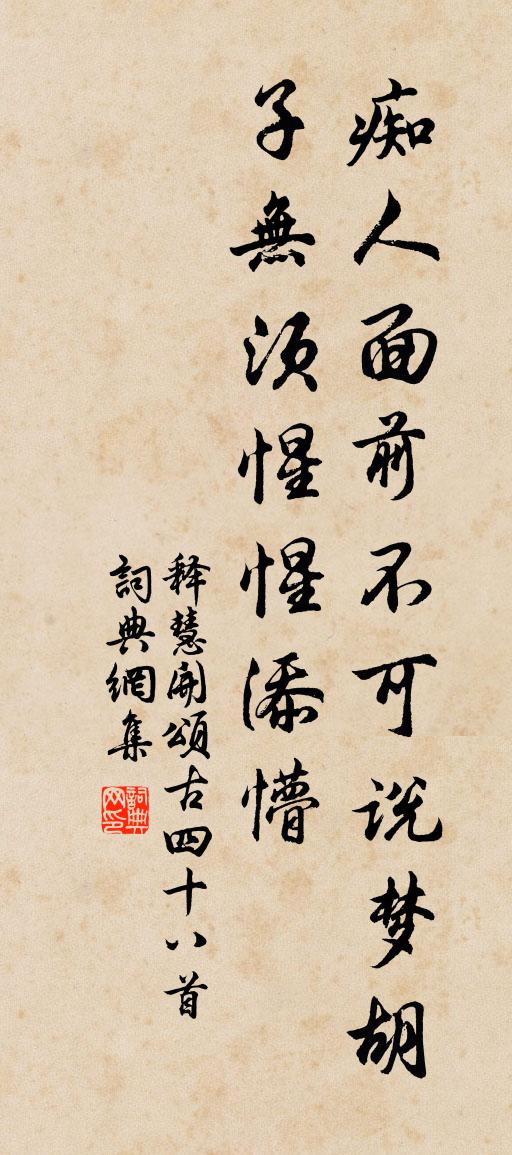 痴人面前不可说梦胡
子無須惺惺添懵
释慧開頌古四十八首
詞典網集
詞典网印